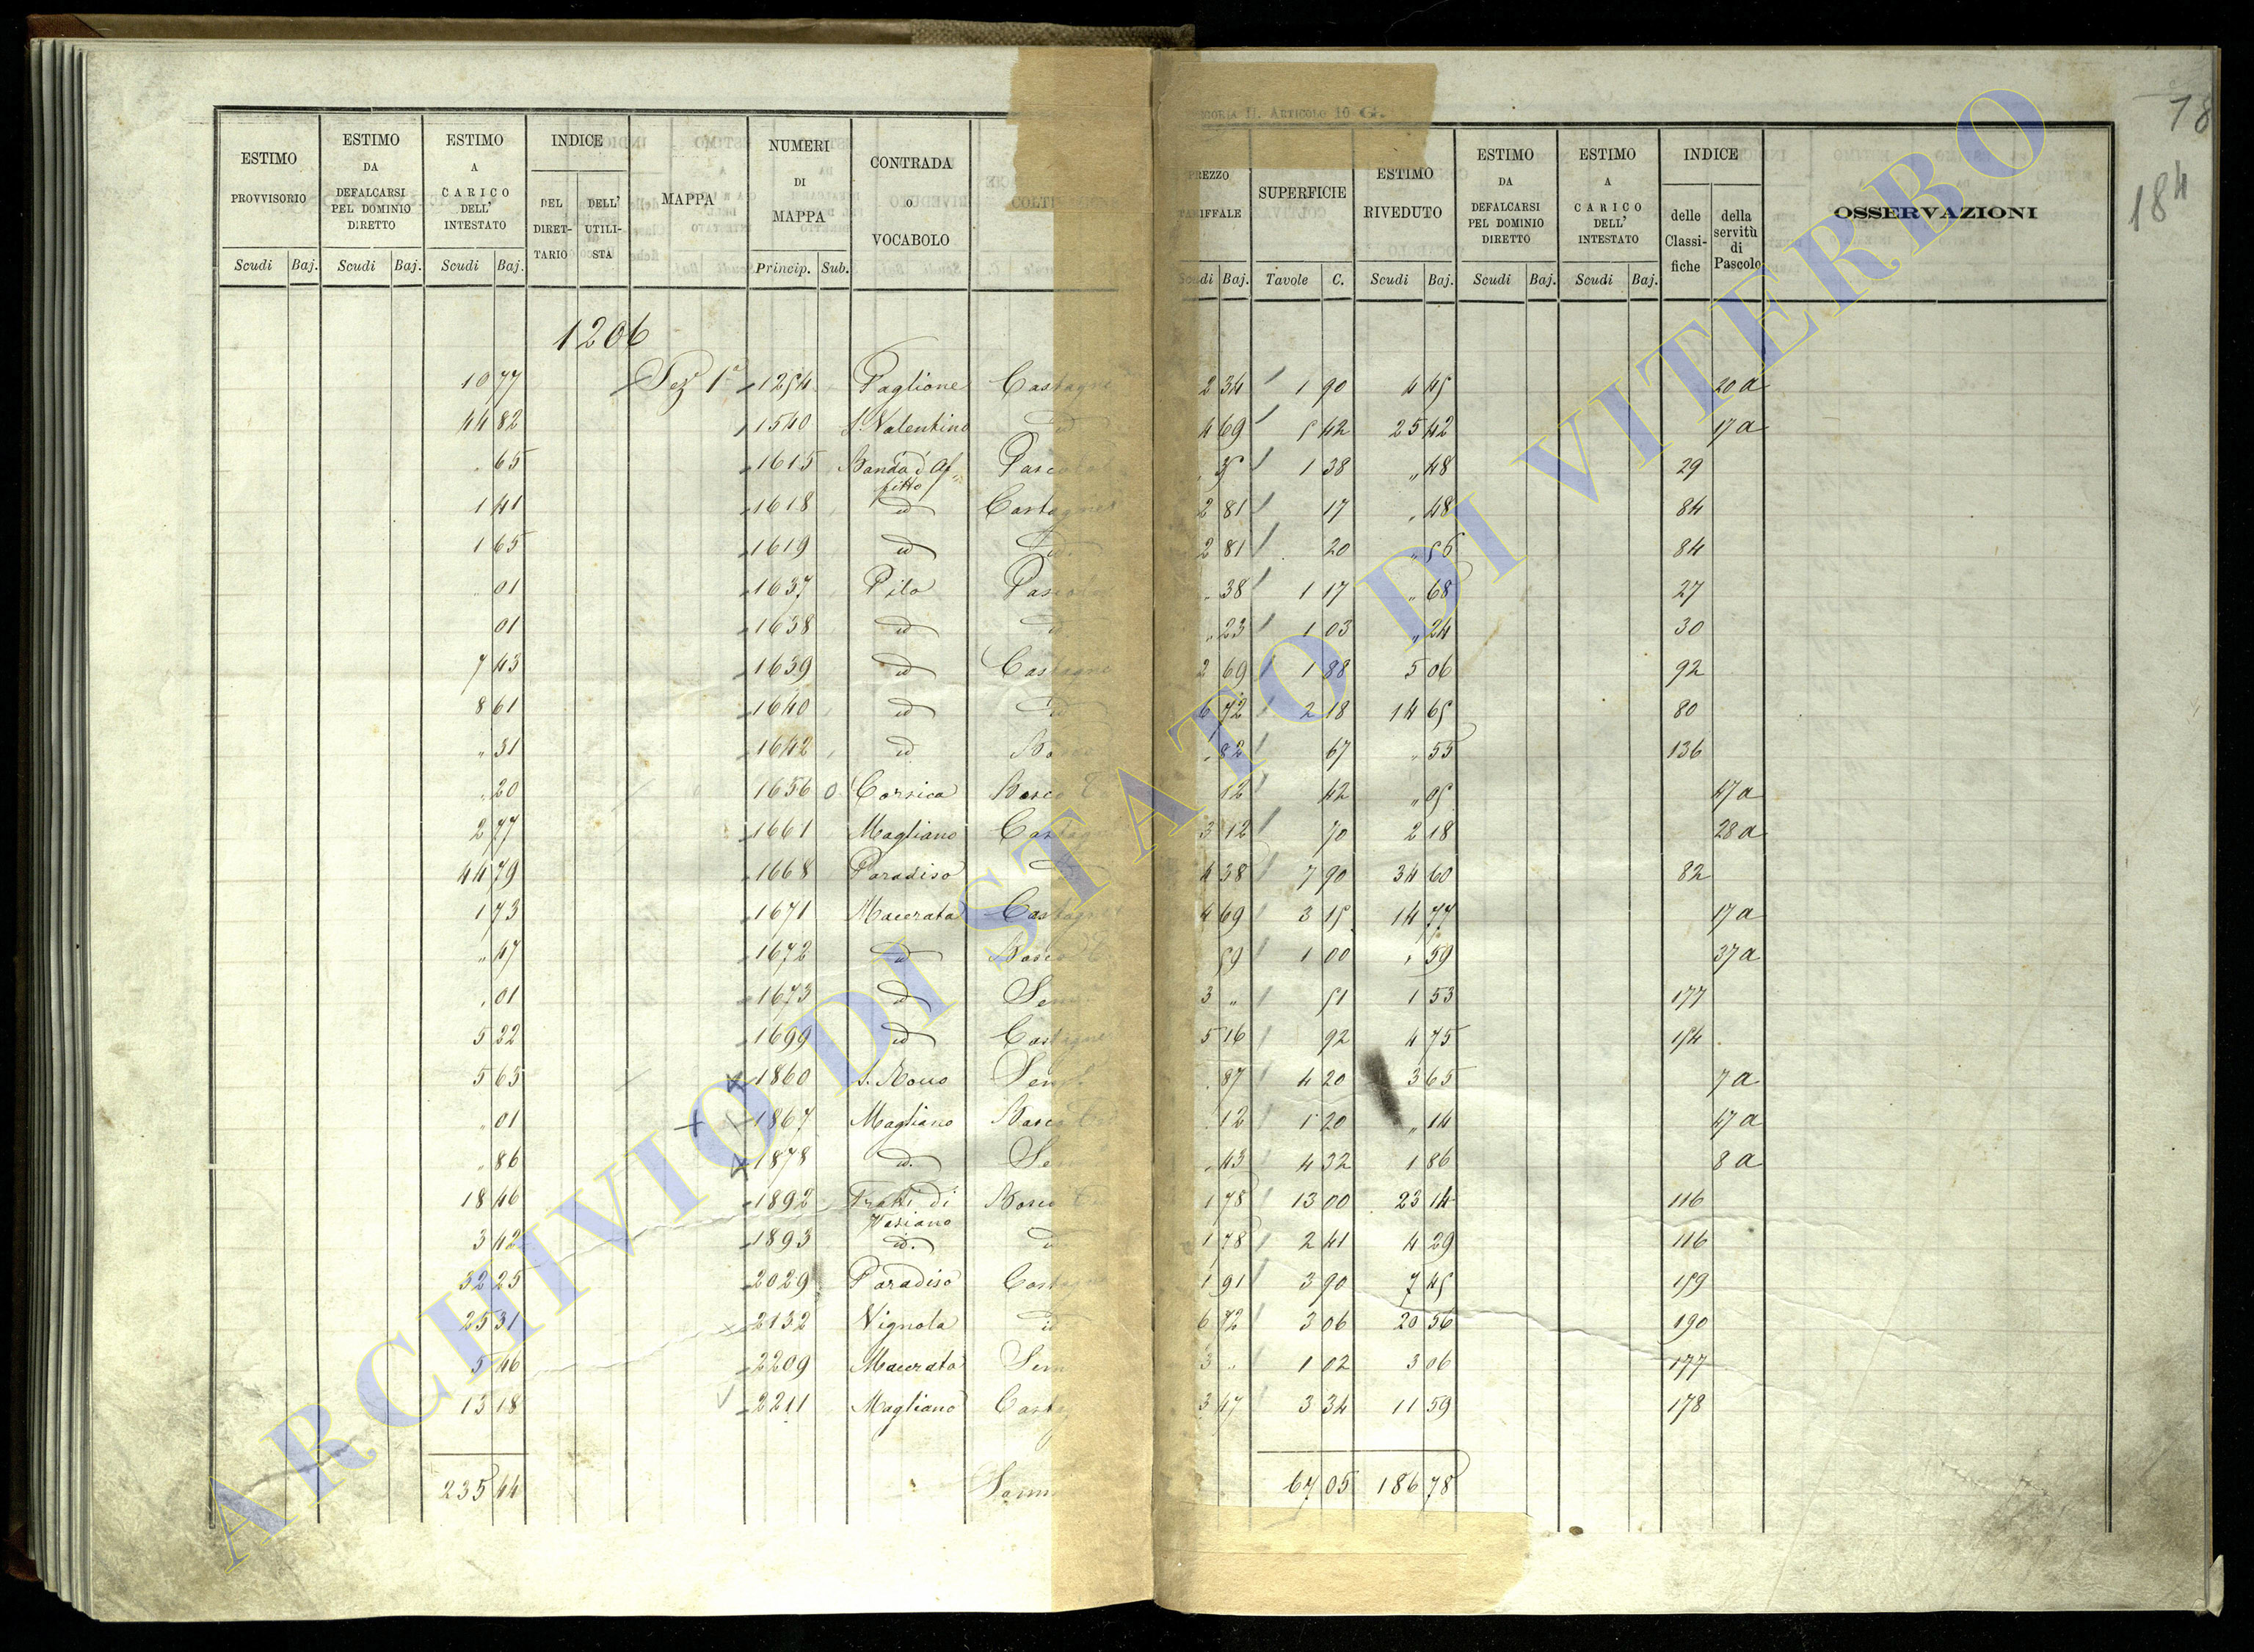 78
184
goria II. Articolo 10 G.
ESTIMO PROVVISORIO
ESTIMO DA DEFALCARSI PEL DOMINIO DIRETTO
ESTIMO A CARICO DELL' INTESTATO
INDICE
DEL DIRETTARIO
DELL' UTILISTA
MAPPA
NUMERI DI MAPPA
CONTRADA O VOCABOLO
PREZZO TARIFFALE
SUPERFICIE
ESTIMO RIVEDUTO
ESTIMO DA DEFALCARSI PEL DOMINIO DIRETTO
ESTIMO A CARICO DELL' INTESTATO
INDICE
delle Classifiche
della servitù di Pascolo
OSSERVAZIONI
Scudi Baj. Scudi Baj. Scudi Baj. Princip. Sub. Scudi Baj. Tavole C. Scudi Baj. Scudi Baj. Scudi Baj.
1206
10 77 Sez. 1a 1254 Paglione Castagne 2 34 1 90 4 45 20 a
44 82 1540 S. Valentino id 4 69 5 42 25 42 17 a
" 65 1615 Banda d'Affitto Pasco " 35 1 38 " 48 29
1 41 1618 id Castagne 2 81 17 " 48 84
1 65 1619 id id. 2 81 20 " 56 84
" 01 1637 Pilo Pasco " 38 1 17 " 68 27
01 1638 id id " 23 1 03 " 24 30
7 43 1639 id Castagne 2 69 1 88 5 06 92
8 61 1640 id id 6 72 2 18 14 65 80
" 31 1642 id Bosco " 82 67 " 55 136
" 20 1656 0 Corsica Bosco 12 42 " 05 47 a
2 77 1661 Magliano Castagne 3 12 70 2 18 28 a
44 79 1668 Paradiso id. 4 38 7 90 34 60 82
1 73 1671 Macerata Castagne 4 69 3 15 14 77 17 a
" 47 1672 id Bosco 59 1 00 " 59 37 a
" 01 1673 id Sem 3 " 51 1 53 177
5 32 1699 id Castagne 5 16 92 4 75 154
5 65 x 1860 S. Rocco Sem " 87 4 20 3 65 7 a
" 01 + 1867 Magliano Bosco 12 1 20 " 14 47 a
" 86 x 1878 id. Sem " 43 4 32 1 86 8 a
18 46 1892 Fratti di Vasiano Bosco 1 78 13 00 23 14 116
3 42 1893 id. 1 78 2 41 4 29 116
32 25 2029 Paradiso Cast 1 91 3 90 7 45 159
25 31 2132 Vignola id 6 72 3 06 20 56 190
5 46 2209 Macerata Sem 3 " 1 02 3 06 177
13 18 2211 Magliano Cast 3 47 3 34 11 59 178
235 44 Somm 67 05 186 78
ARCHIVIO DI STATO DI VITERBO